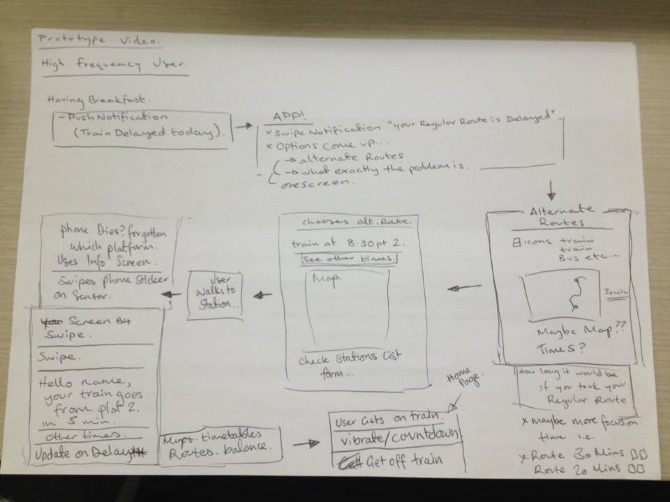 Prototype Video.
High Frequency User.
Having Breakfast.
- Push Notification
(Train Delayed today).
APP!
x Swipe Notification "your Regular Route is Delayed"
x Options Come up...
→ alternate Routes
→ what exactly the problem is.
onescreen.
Alternate
Routes
icons train
train
Bus etc..
Maybe Map??
Times?
How long it would be
if you took your
Regular Route
x maybe more focus on
time i.e.
x Route 30 Mins
Route 20 Mins
chooses alt. Route
train at 8:30 pt 2.
See other times.
Map
Check Stations List
form...
User
Walks to
Station..
phone Dies? forgotten
which platform.
Uses Info Screen.
Swipes phone Sticker
on Sensor.
Screen B4
Swipe.
Swipe.
Hello name,
your train goes
from plat 2.
in 5 min.
other times.
Update on Delay
Maps. timetables
Routes. balance.
Home
Page.
User Gets on train.
vibrate/countdown
Get off train